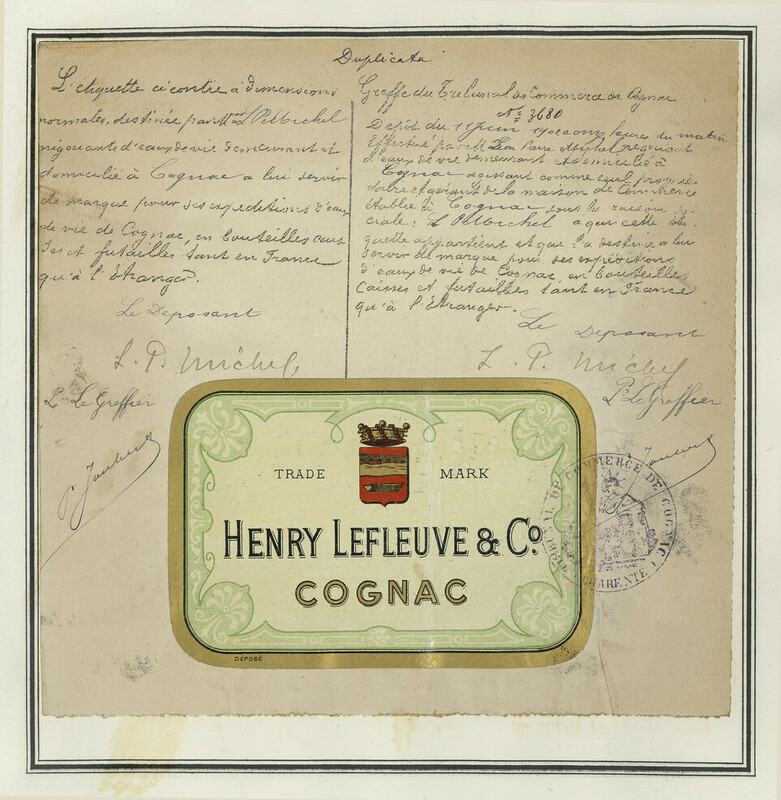 Duplicata
L'étiquette ci contre à dimensions
normales, destinée par M. L P. Michel
négociants d'eaux de vie demeurant et
domicilié à Cognac a lui servir
de marque pour ses expeditions d'eaux
de vie de Cognac, en bouteilles cais
ses et futailles tant en France
qu'à l'étranger.
Le Deposant
L. P. Michel
P. Le Greffier
P. Joubert
Greffe du Tribunal de Commerce de Cognac
No 3680
Dépôt du 11 Juin heures du matin
Effectué par M. Léon Pierre Michel négociant
d'eaux de vie demeurant et domicilié à
Cognac agissant comme seul proprié-
taire et gérant de la maison de Commerce
établie à Cognac sous la raison so-
ciale: L P. Michel a qui cette éti
quette appartient et qui la destine a lui
servir de marque pour ses expéditions
d'eaux de vie de Cognac, en bouteilles
Caisses et futailles tant en France
qu'à l'étranger.
Le Deposant
L. P. Michel
P. Le Greffier
TRADE MARK
HENRY LEFLEUVE & Co
COGNAC
DÉPOSÉ
TRIBUNAL DE COMMERCE DE COGNAC
CHARENTE